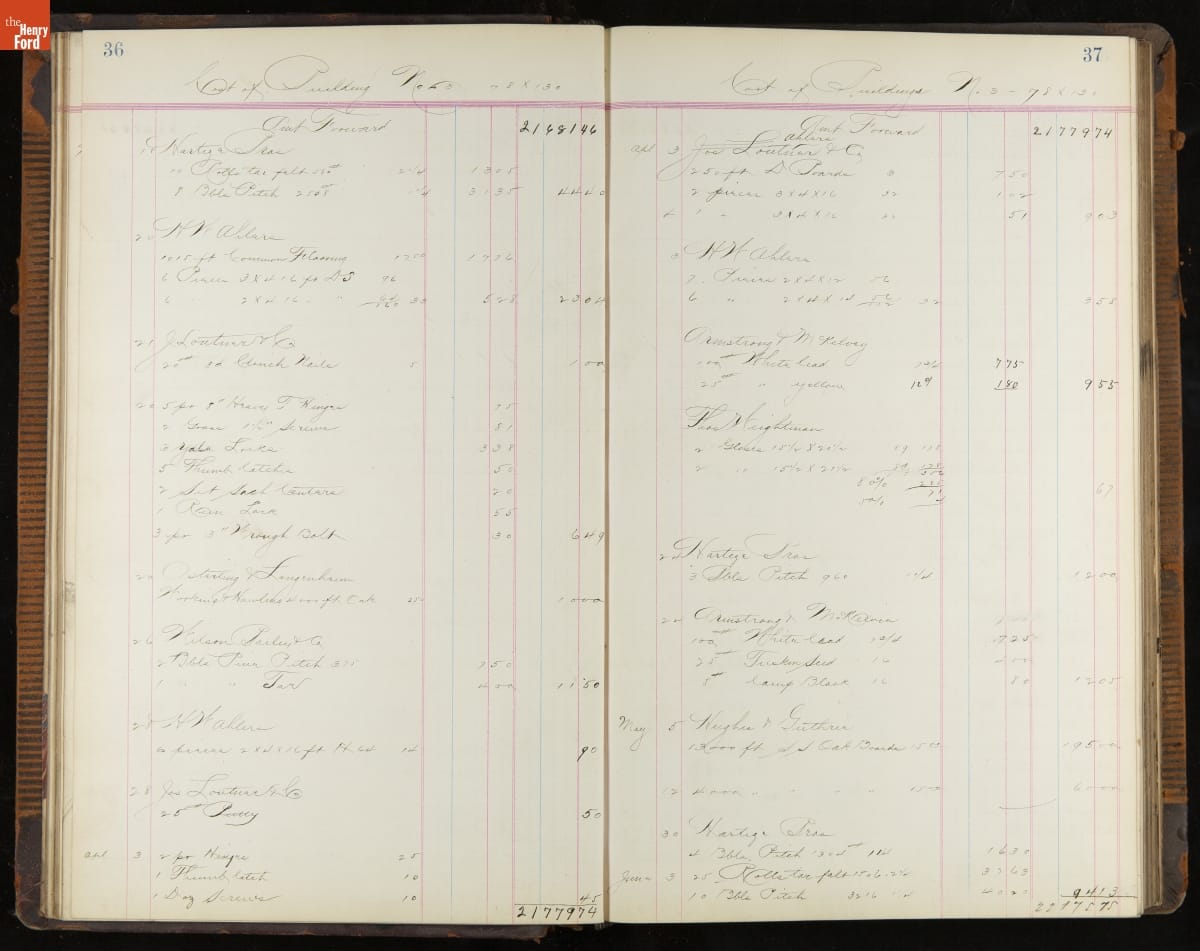 the Henry Ford
36
Cost of Building No 78 X 130
Amt Forward 21681 46
18 Hartige Bros
10 Rolls tar felt 2 1/4 13 05
8 Bbls Pitch 2508 1 1/4 31 35 44 40
20 H W Ahlers
1015 ft Common Flooring 17 50 17 76
6 Pieces 3 X 4 16 D S 96
6 " 2 X 4 16 - " 33 5 28 23 04
21 J Loutner & Co
20# 3d Clinch Nails 5 1 00
20 5 pr 8" Heavy T Hinges 75
2 Gross 1 1/2" Screws 81
3 Yale Locks 3 38
5 Thumb Catches 50
2 Sash 20
1 Rim Lock 55
3 pr 3" Wrough Bolt 30 6 49
20 & Langenheim
4000 ft Oak 250 10 00
26 Wilson Bailey & Co
2 Bbls Pine Pitch 375 7 50
1 " " Tar 4 00 11 50
28 H W Ahlers
6 pieces 2 X 4 X 16 ft H 64 14 90
28 Jos Loutner & Co
25# Putty 50
Apl 3 2 pr Hinges 25
1 Thumb latch 10
1 Doz Screws 10 45
21779 74
37
Cost of Buildings No. 3 - 78 X 130
Amt Forward 21779 74
Ahlers
Apl 3 Jos Loutner & Co
250 ft D Boards 3 7 50
2 pieces 3 X 4 X 16 32 1 02
4 1 " 3 X 4 X 16 32 51 9 03
3 H W Ahlers
7 Pieces 2 X 4 X 12 56
6 " 2 X 4 X 14 56 32 3 58
Armstrong & McKelvey
100# White lead 7 75
25# " yellow 1 80 9 55
Thos Wightman
2 Glass 15 1/2 X 20 1/2
2 " 15 1/2 X 21 1/2
80%
50% 67
24 Hartige Bros
3 Bbls Pitch 960 1 1/4 12 00
22 Armstrong & McKelvey
100# White lead 7 25
25# 16 4 00
5# Lamp Black 16 80 12 05
May 5 Hughes & Guthrie
13,000 ft S S Oak Boards 15 00 195 00
12 4000 " " " " 15 00 60 00
30 Hartige Bros
4 Bbls. Pitch 1304# 1 1/4 16 30
June 3 25 Rolls tar felt 1506 2 1/2 37 63
10 Bbls Pitch 3216 40 20 94 13
22175 75